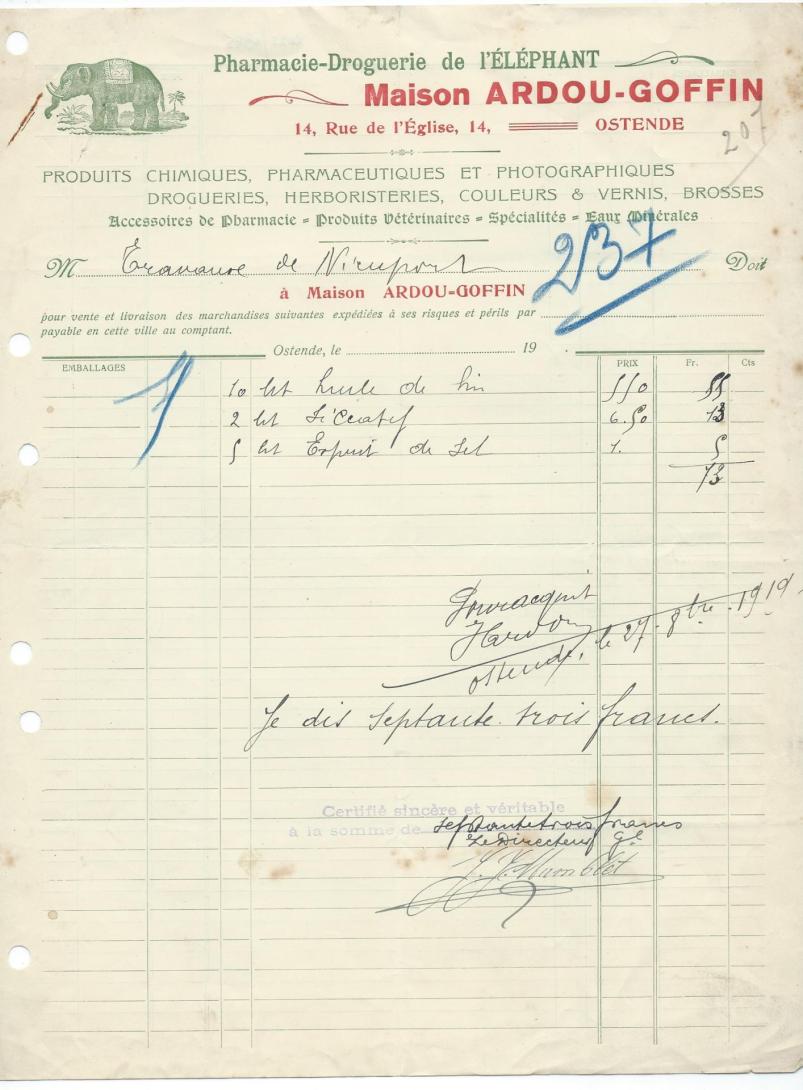 Pharmacie-Droguerie de l'ÉLÉPHANT
Maison ARDOU-GOFFIN
14, Rue de l'Église, 14, OSTENDE
207
PRODUITS CHIMIQUES, PHARMACEUTIQUES ET PHOTOGRAPHIQUES
DROGUERIES, HERBORISTERIES, COULEURS & VERNIS, BROSSES
Accessoires de Pharmacie = Produits Vétérinaires = Spécialités = Eaux Minérales
M Travaux de Nieuport Doit
237
à Maison ARDOU-GOFFIN
pour vente et livraison des marchandises suivantes expédiées à ses risques et périls par
payable en cette ville au comptant.
Ostende, le 19 .
EMBALLAGES PRIX Fr. Cts
10 lit huile de lin 5,50 55
2 lit Siccatif 6.50 13
5 lit Esprit de Sel 1. 5
73
Pour acquit
Ostende, le 27. 8bre. 1919.
Je dis septante trois francs.
Certifié sincère et véritable
à la somme de septante trois francs
Le Directeur Gl